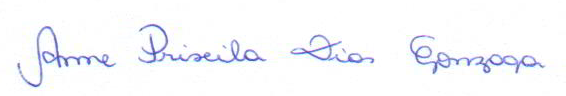 Anne Priscila Dias Gonzaga